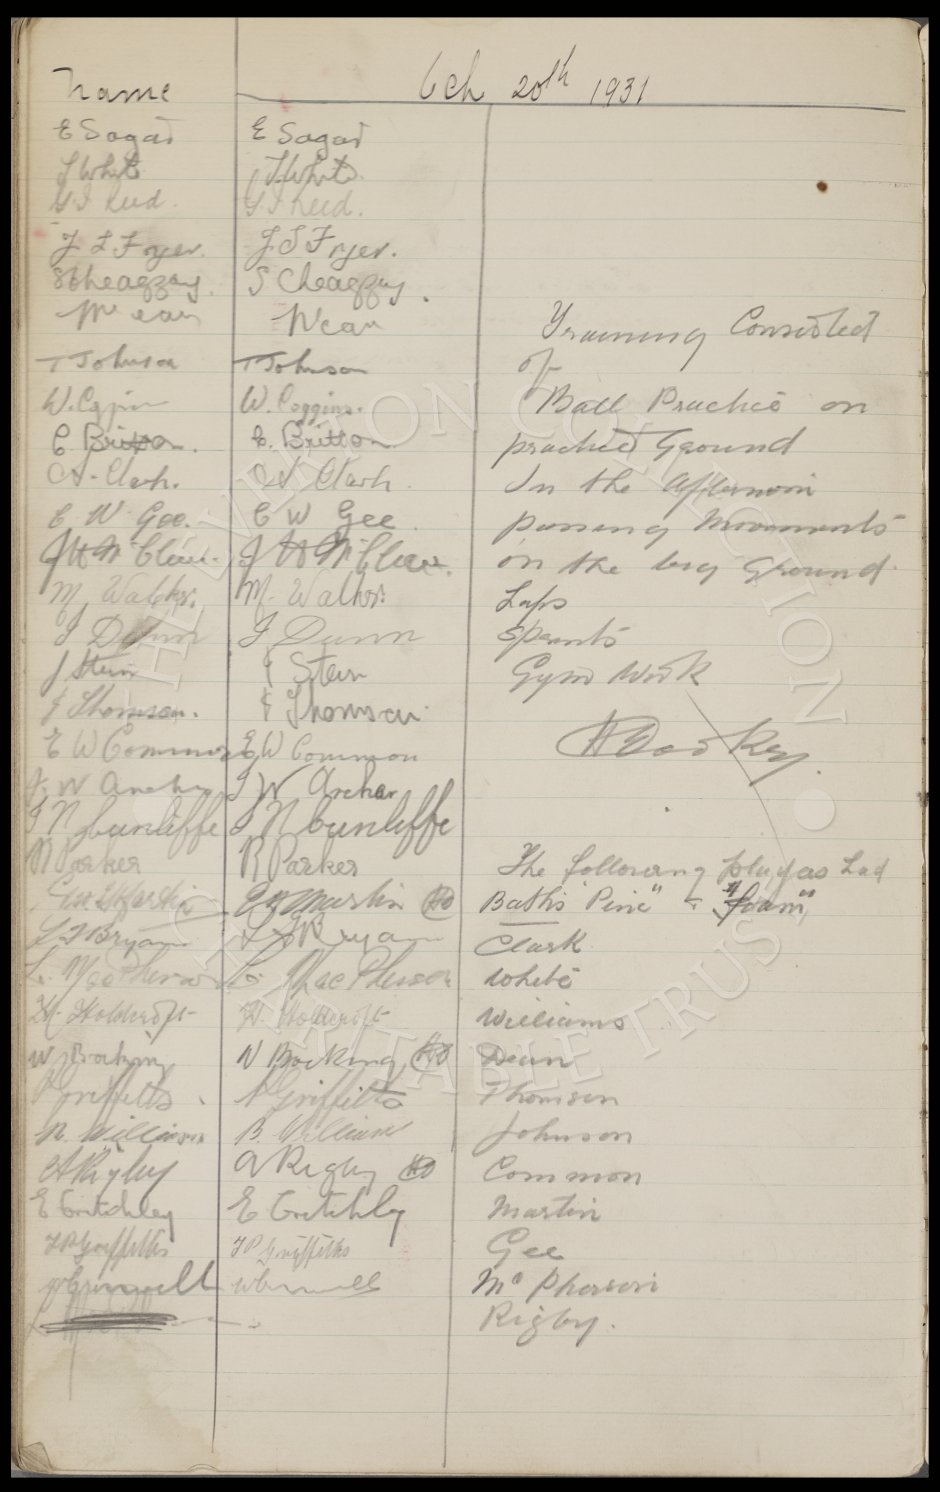 Name 20th 1931
E Sagar E Sagar
T White T. White
G. I Reid. G. I Reid.
J S Fryer. J S Fryer.
S Cheagzay. S Cheagzay.
T Johnson T Johnson
W. W. Coggins.
C. Britton. C. Britton.
A. Clark. A Clark.
C W Gee. C W Gee
J H McClure. J H McClure.
M. Walker. M. Walker.
J Dunn J Dunn
J Stein J Stein
J Thomson. J Thomson.
E W Common E W Common
J W Archer J W Archer
J N Cunliffe J N Cunliffe
R Parker R Parker
Geo E Martin G E Martin
L F Bryan L F Bryan
L. MacPherson L. MacPherson
H. Holdcroft H. Holdcroft
W Bocking W Bocking
P Griffiths. P Griffiths
B. Williams B. Williams
A Rigby A Rigby
E Critchley E Critchley
T P Griffiths T P Griffiths
W Cresswell W Cresswell
Training Consisted
of
Ball Practice on
practice Ground
In the Afternoon
passing Movements
on the big Ground
Laps
Sprints
Gym Work
H Cooke
The following players had
Baths "Pine" & "foam"
Clark
White
Williams
Dean
Thomson
Johnson
Common
Martin
Gee
McPherson
Rigby.
THE EVERTON COLLECTION
CHARITABLE TRUST